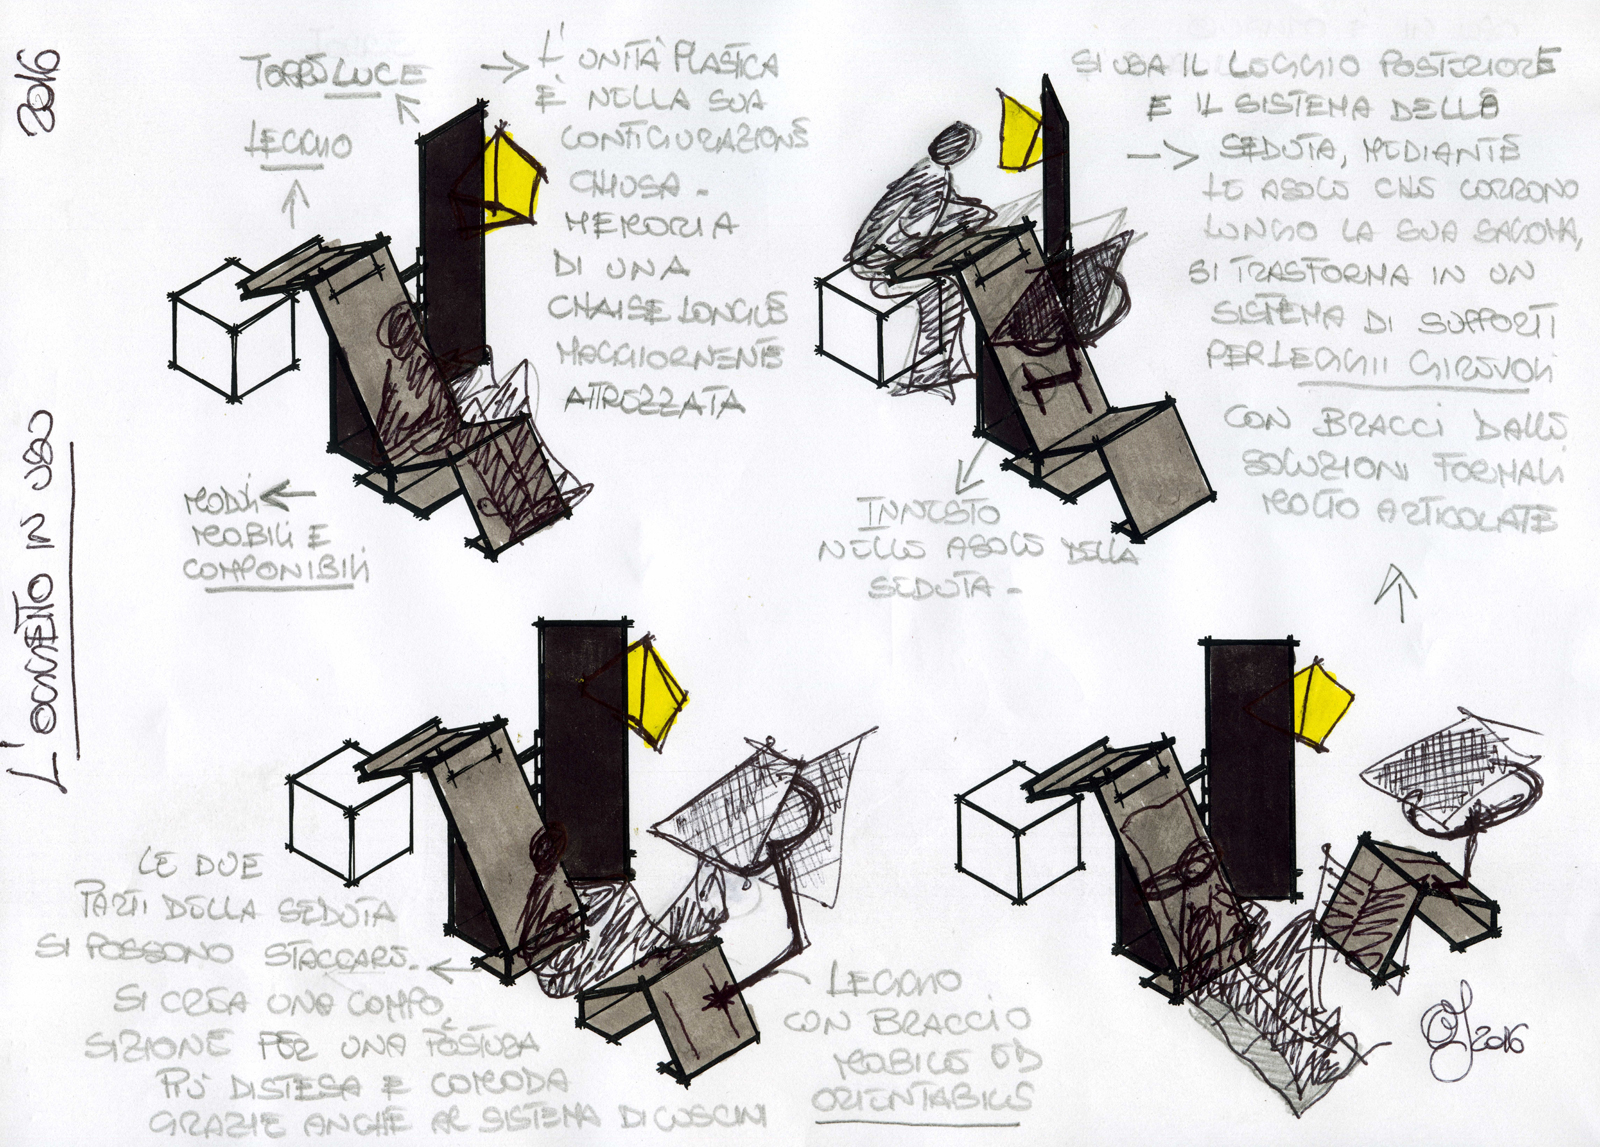 2016
L'OGGETTO IN USO
TORRE LUCE
LEGGIO
→ L'UNITÀ PLASTICA
È NELLA SUA
CONFIGURAZIONE
CHIUSA -
MEMORIA
DI UNA
CHAISE LONGUE
MAGGIORMENTE
ATTREZZATA
MODULI
MOBILI E
COMPONIBILI
SI USA IL LEGGIO POSTERIORE
E IL SISTEMA DELLE
→ SEDUTA, MEDIANTE
LE ASOLE CHE CORRONO
LUNGO LA SUA SAGOMA,
SI TRASFORMA IN UN
SISTEMA DI SUPPORTI
PER LEGGII GIREVOLI
CON BRACCI DALLE
SOLUZIONI FORMALI
MOLTO ARTICOLATE
INNESTO
NELLE ASOLE DELLA
SEDUTA -
LE DUE
PARTI DELLA SEDUTA
SI POSSONO STACCARE.
SI CREA UNA COMPO
SIZIONE PER UNA POSTURA
PIÙ DISTESA E COMODA
GRAZIE ANCHE AL SISTEMA DI CUSCINI
LEGGIO
CON BRACCIO
MOBILE ED
ORIENTABILE
2016